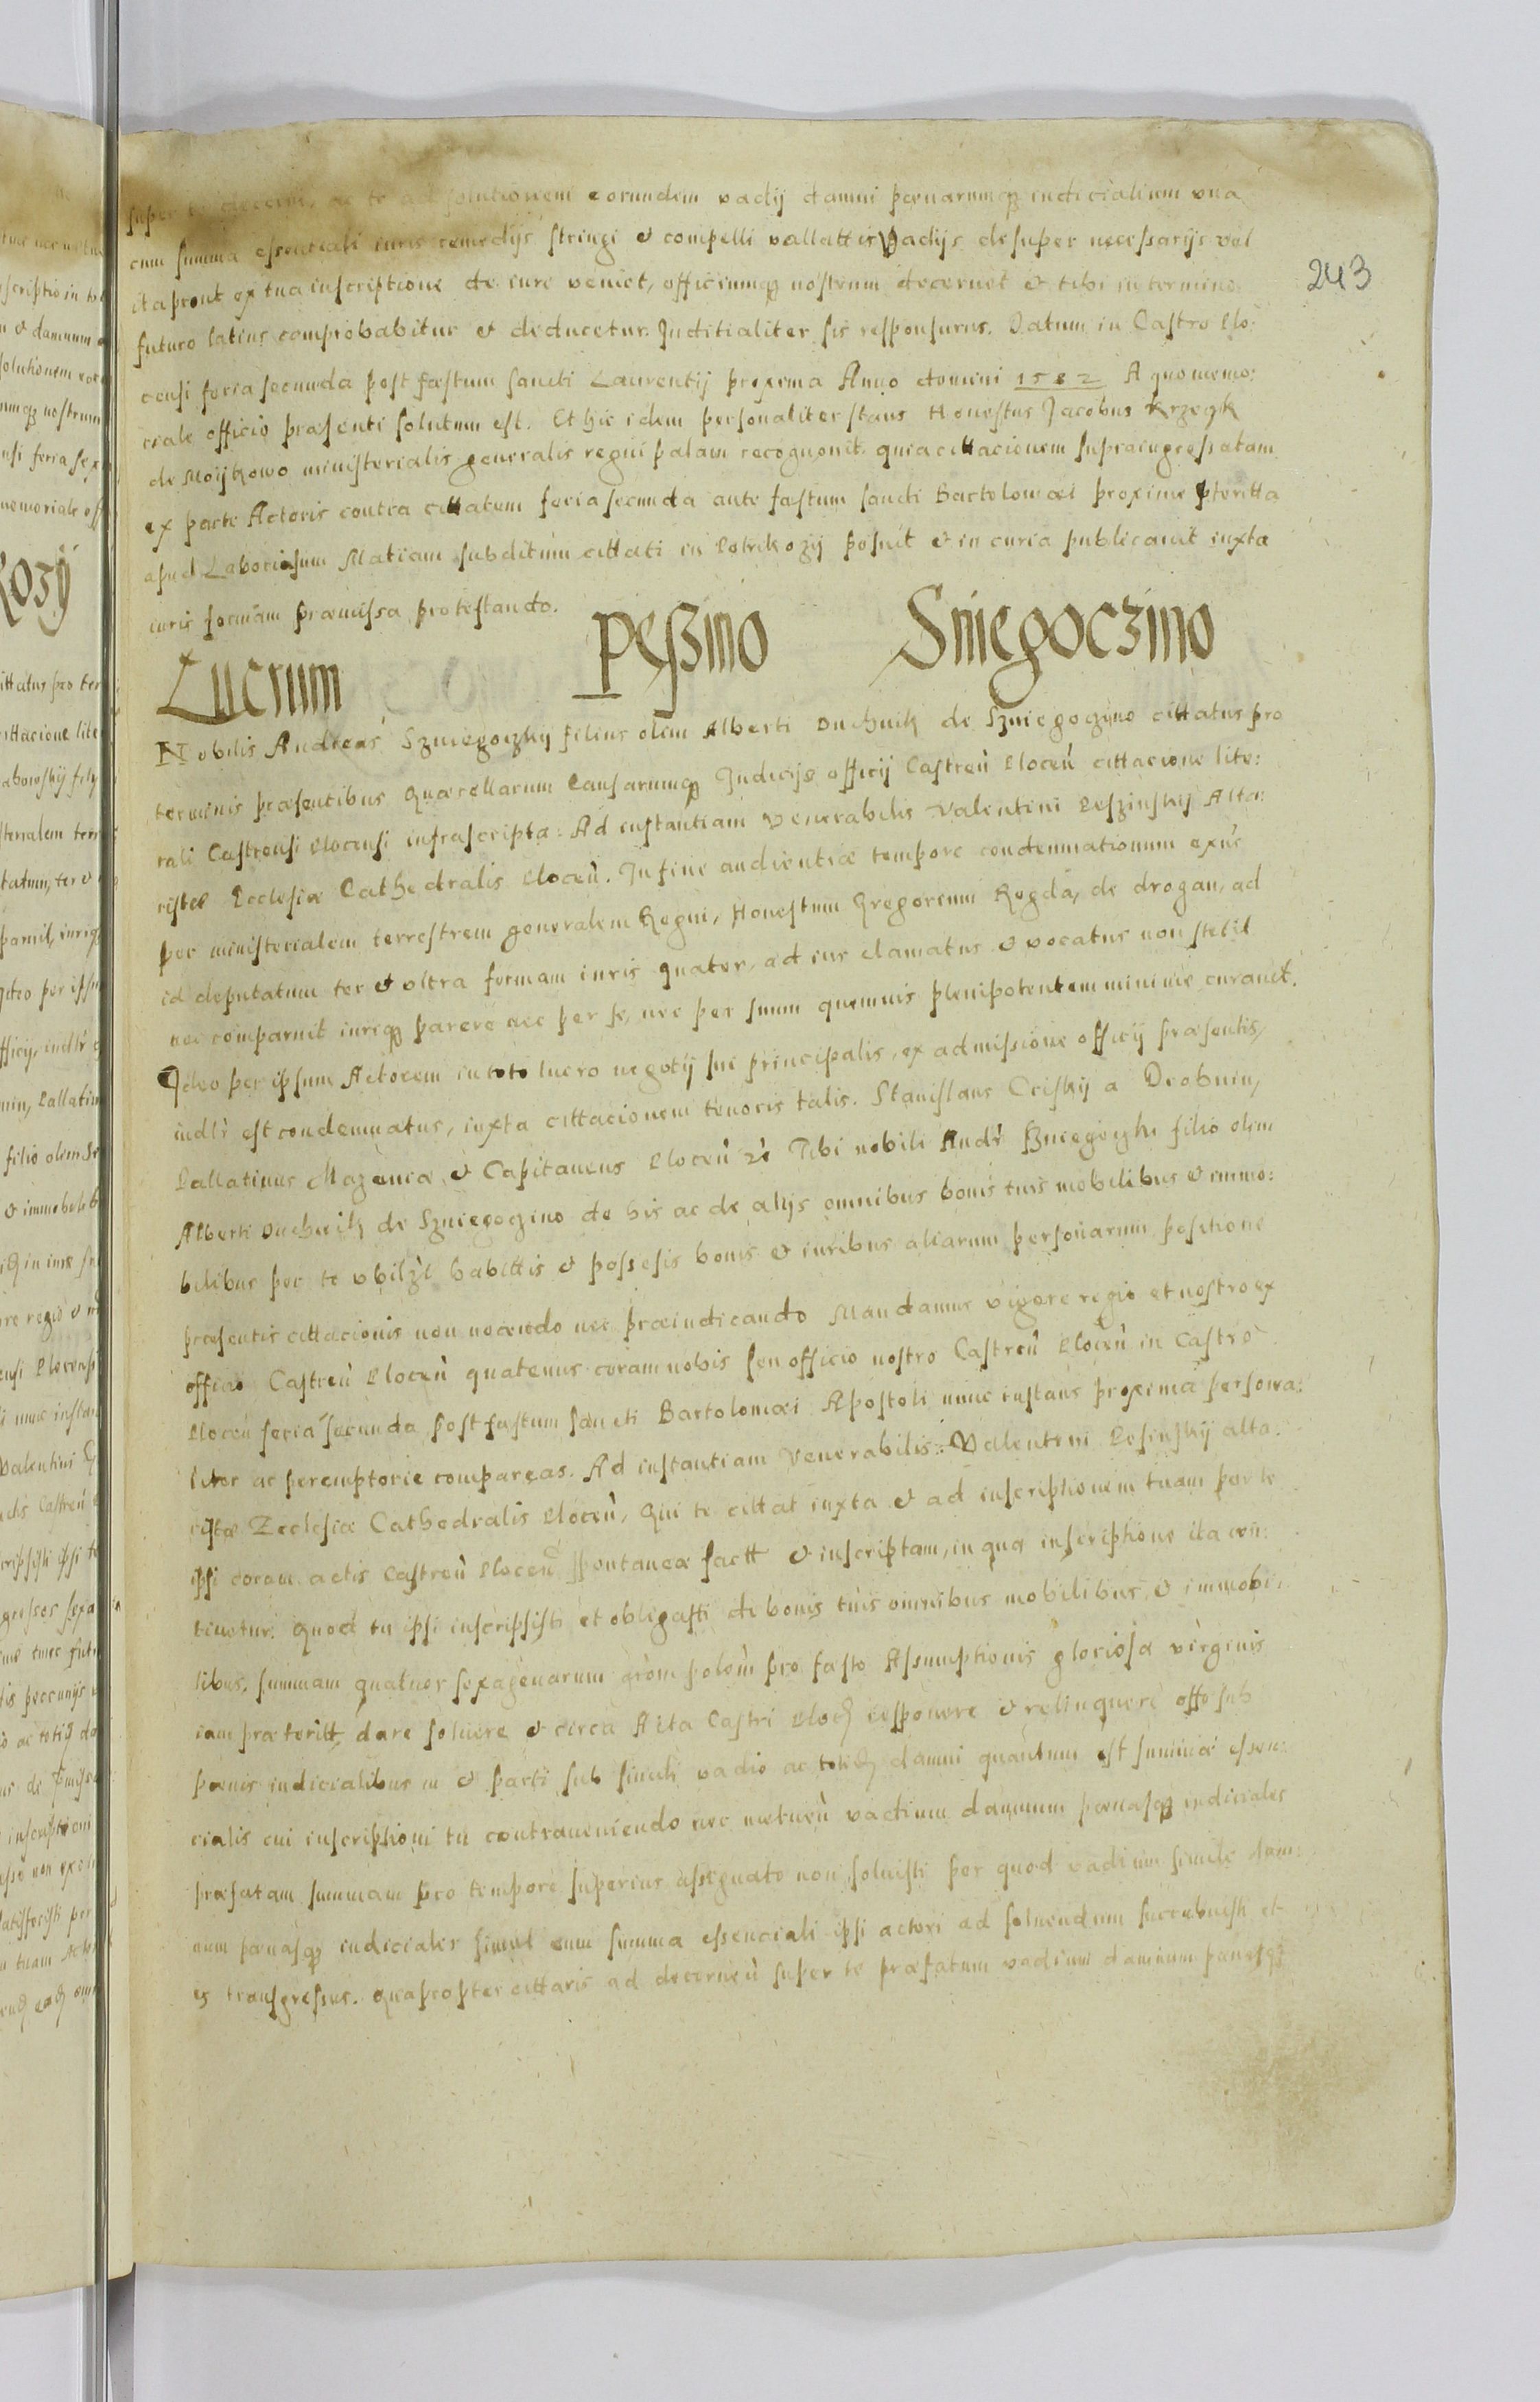 243
super te ac te ad solutionem eorundem vadij damni pœnarumq3 iudicialium vna
cum summa essentiali iuris remedijs stringi et compelli vallattis Vadijs desuper necessarijs vel
itaprout ex tua inscriptione de iure veniet, officiumq3 nostrum decernet et tibi in termino
futuro latius comprobabitur et deducetur. Juditialiter sis responsurus. Datum in Castro Plo:
censi feria secunda post fæstum sancti Laurentij proxima Anno domini 1582 A quo memo:
riale officio præsenti solutum est. Et hic idem personaliter stans Honestus Jacobus Krzegk
de Moijkowo ministerialis generalis regni palam recognouit. quia cittacionem supraingressatam
ex parte Actoris contra cittatum feria secunda ante fæstum sancti Bartolomæi proxime pteritta
apud Laboriosum Matiam subditum cittati in Potrikozy posuit et in curia publicauit iuxta
iuris formam præmissa protestando.
Lucrum peßino Sniegoczino
Nobilis Andreas Szniegoczky filius olim Alberti Duchnik de Szniegoczyno cittatus pro
terminis præsentibus Quærellarum Causarumq3 Judicijs officij Castreñ Ploceñ cittacione lite:
rali Castrensi Plocensi infrascripta: Ad instantiam Venerabilis Valentini Peszinskij Alta:
ristæ Ecclesiæ Cathedralis Ploceñ. In fine audientiæ tempore condemnationum ex
per ministerialem terrestrem generalem Regni, Honestum Gregorium Rogda, de drogan, ad
id deputatum ter et vltra formam iuris quater, ad ius clamatus et vocatus non stetit
nec comparuit iuriq3 parere nec per se, nec per suum quemuis plenipotentem minime curauit.
Ideo per ipsum Actorem in toto lucro negotij sui principalis, ex admissione officij præsentis,
est condemnatus, iuxta cittacionem tenoris talis. Stanislaus Criskij a Drobnin,
Pallatinus Mazouiæ et Capitaneus Ploceñ Tibi nobili Szniegoczki filio olim
Alberti Duchnik de Szniegoczino de his ac de alijs omnibus bonis tuis mobilibus et immo:
bilibus per te habittis et possesis bonis et iuribus aliarum personarum positione
præsentis cittacionis non nocendo nec præiudicando Mandamus vigore regio et nostro ex
officio Castreñ Ploceñ quatenus coram nobis seu officio nostro Castreñ Ploceñ in Castro
Ploceñ feria secunda post fæstum sancti Bartolomæi Apostoli nunc instans proxima persona:
liter ac peremptorie compareas. Ad instantiam Venerabilis: Valentini Pesinskij alta:
ristæ Ecclesiæ Cathedralis Ploceñ, Qui te cittat iuxta et ad inscriptionem tuam per te
ipsi coram actis Castreñ Ploceñ spontanea factt et inscriptam, in qua inscriptione ita con:
tinetur. Quod tu ipsi inscripsisti et obligasti de bonis tuis omnibus mobilibus et immobi:
libus. summam quatuor sexagenarum pro fæsto Assumptionis gloriosa virginis
iam præteritt dare soluere et circa Acta Castri Ploc3 reponere et relinquere sub
pœnis iudicialibus et parti sub simili vadio ac damni quantum est summæ essen:
cialis cui inscriptioni tu contraueniendo nec metueñ vadium damnum pœnasq3 iudiciales
præfatam summam pro tempore superius assignato non soluisti per quod vadium simile dam:
num pœnasq3 iudiciales simul cum summa essenciali ipsi actori ad soluendum succubuisti et
es transgressus. Quapropter cittaris ad decerneñ super te præfatum vadium damnum pœnasq3